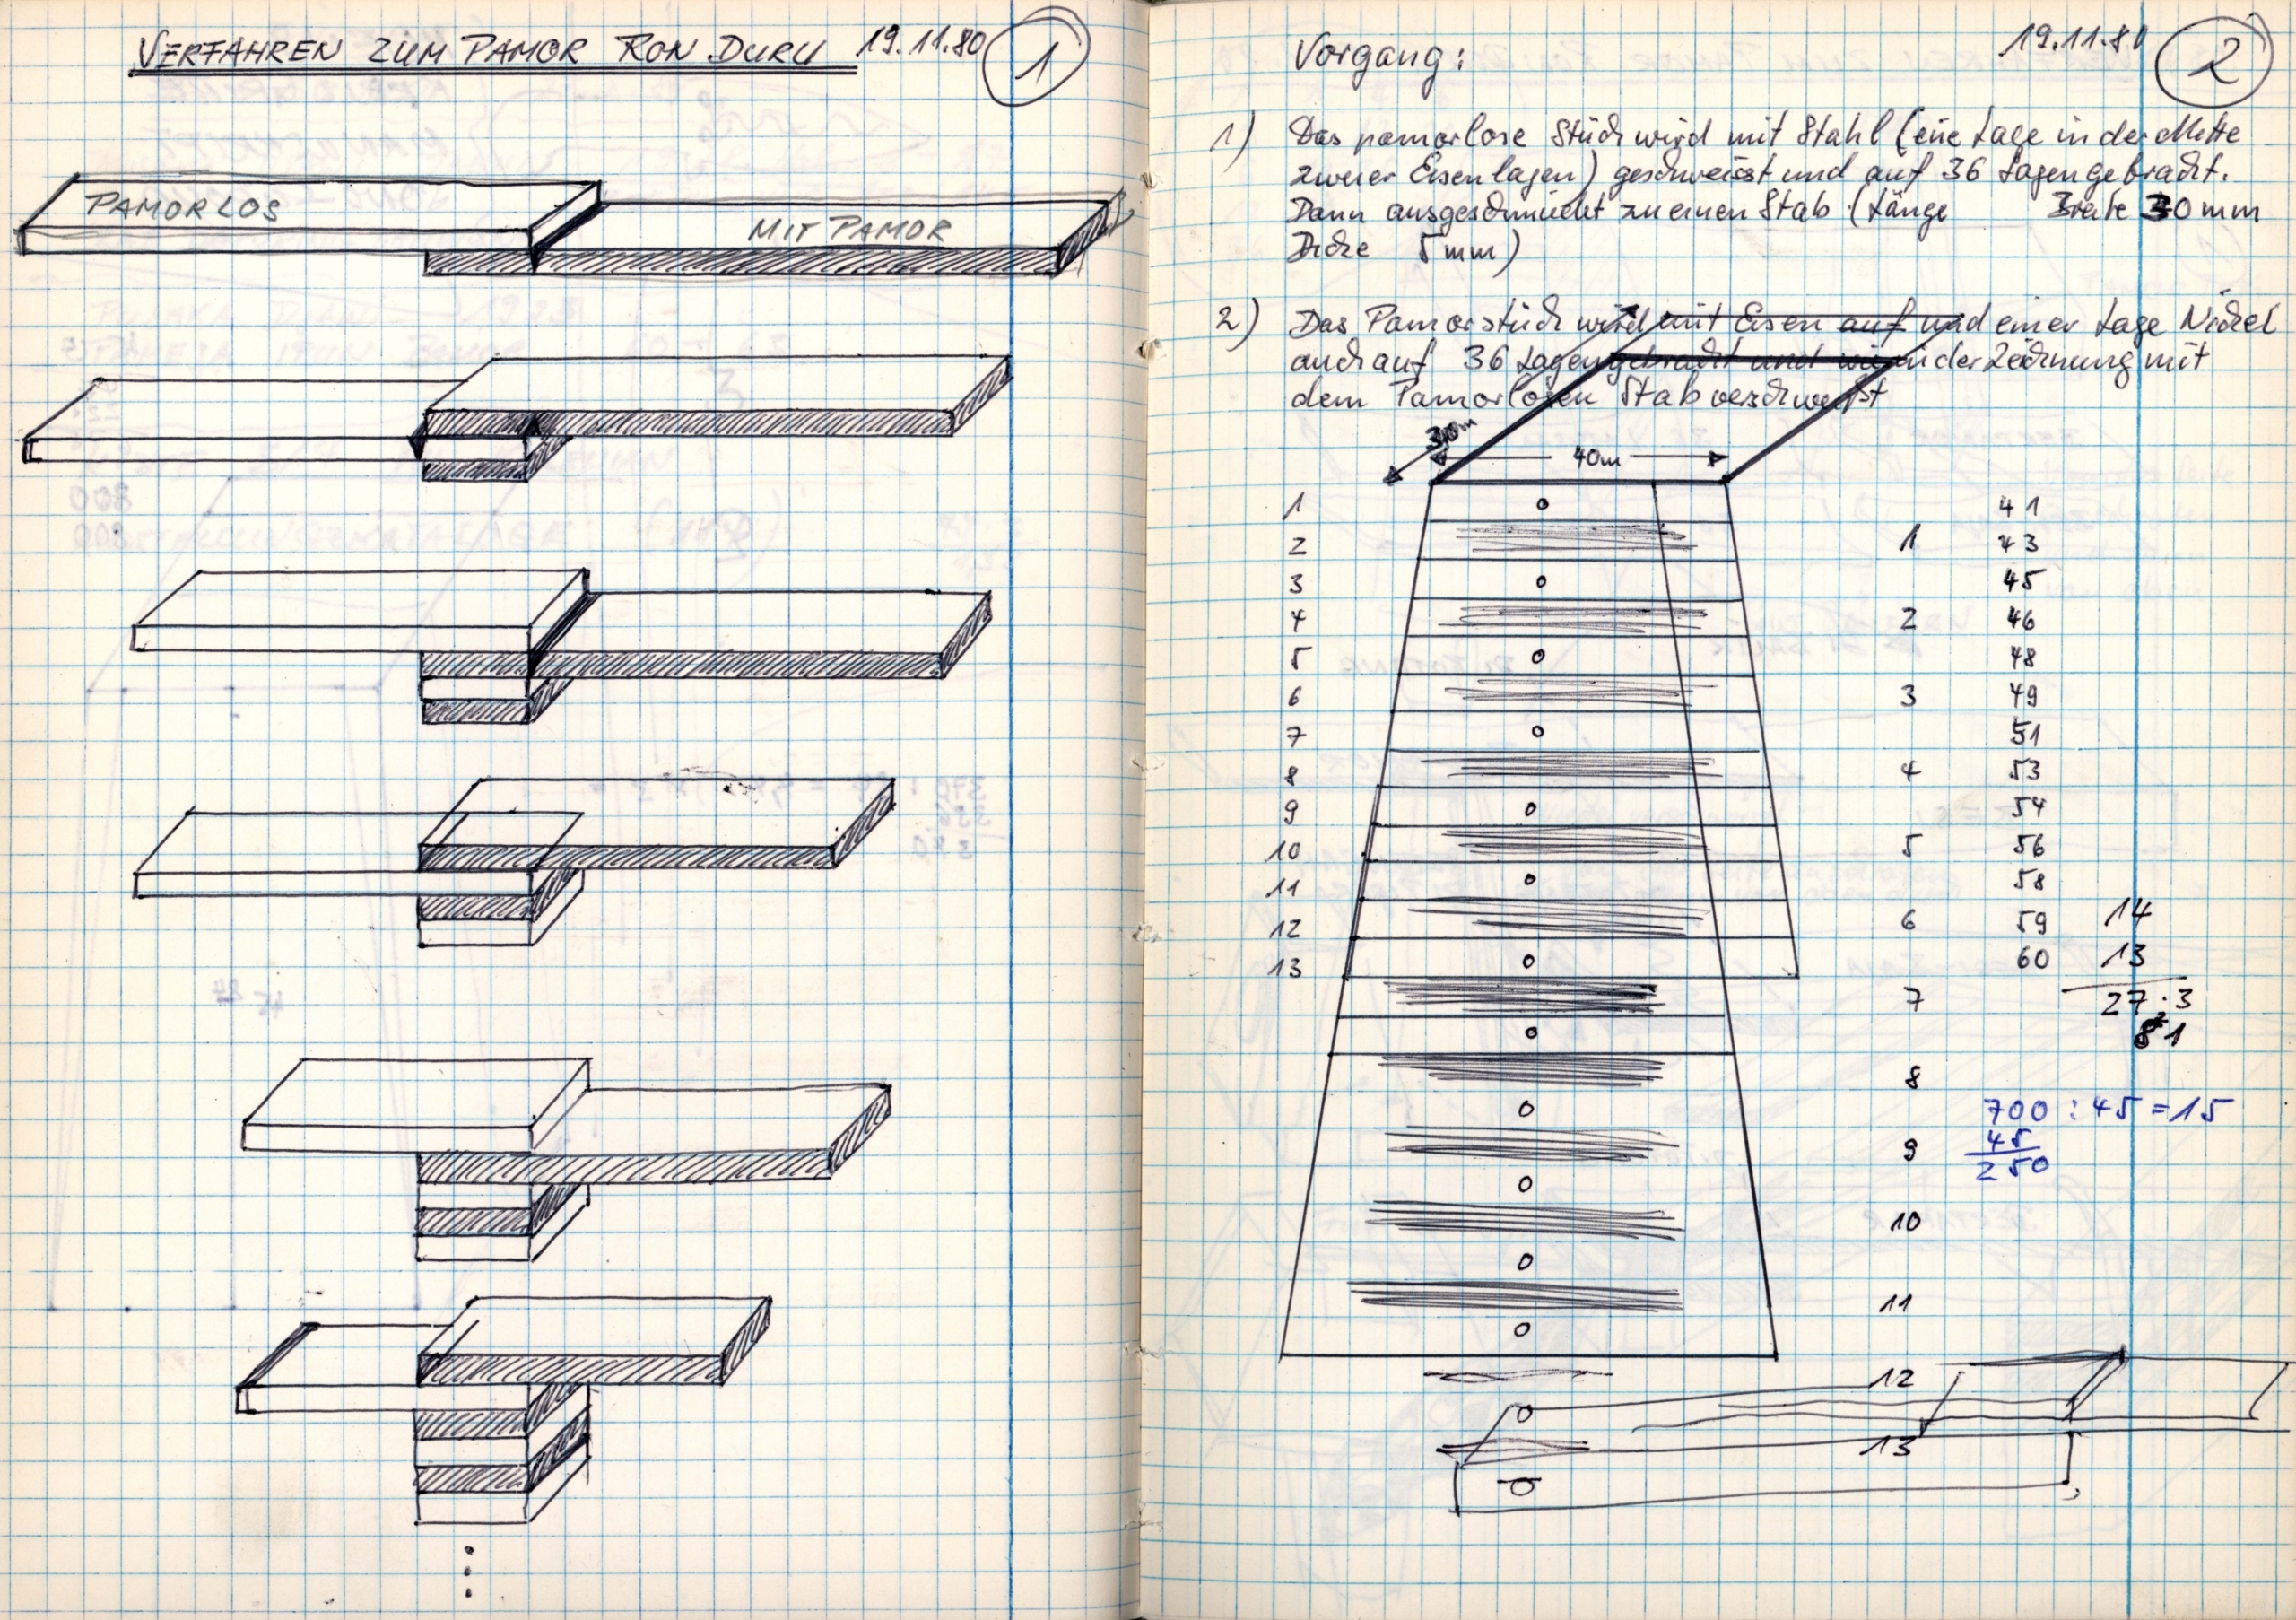 VERFAHREN ZUM PAMOR RON DURU 19.11.80 1
PAMORLOS
MIT PAMOR
19.11.80 2
Vorgang:
1) Das pamorlose Stück wird mit Stahl (eine Lage in der Mitte
zweier Eisenlagen) geschweisst und auf 36 Lagen gebracht.
Dann ausgeschmiedet zu einen Stab (Länge Breite 30 mm
Dicke 5 mm)
2) Das Pamorstück wird mit Eisen auf und einer Lage Nickel
auch auf 36 Lagen gebracht und wie in der Zeichnung mit
dem Pamorlosen Stab verschweisst
40m
1 o 41
2 1 43
3 o 45
4 2 46
5 o 48
6 3 49
7 o 51
8 4 53
9 o 54
10 5 56
11 o 58
12 6 59 14
13 o 60 13
7 27·3
o 81
8
o 700 : 45 = 15
9 45
o 250
10
o
11
o
12
o
13
o